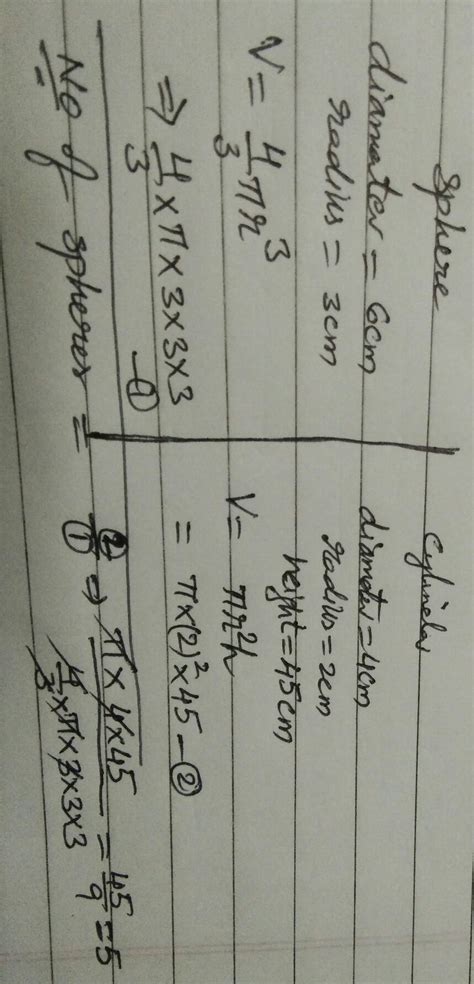 Sphere
diameter = 6cm
radius = 3cm
V = 4/3 πr³
⇒ 4/3 × π × 3 × 3 × 3 - ①
Cylinder
diameter = 4cm
radius = 2cm
height = 45cm
V = πr²h
= π × (2)² × 45 - ②
No of spheres = ②/① ⇒ π × 4 × 45 / 4/3 × π × 3 × 3 × 3 = 45/9 = 5